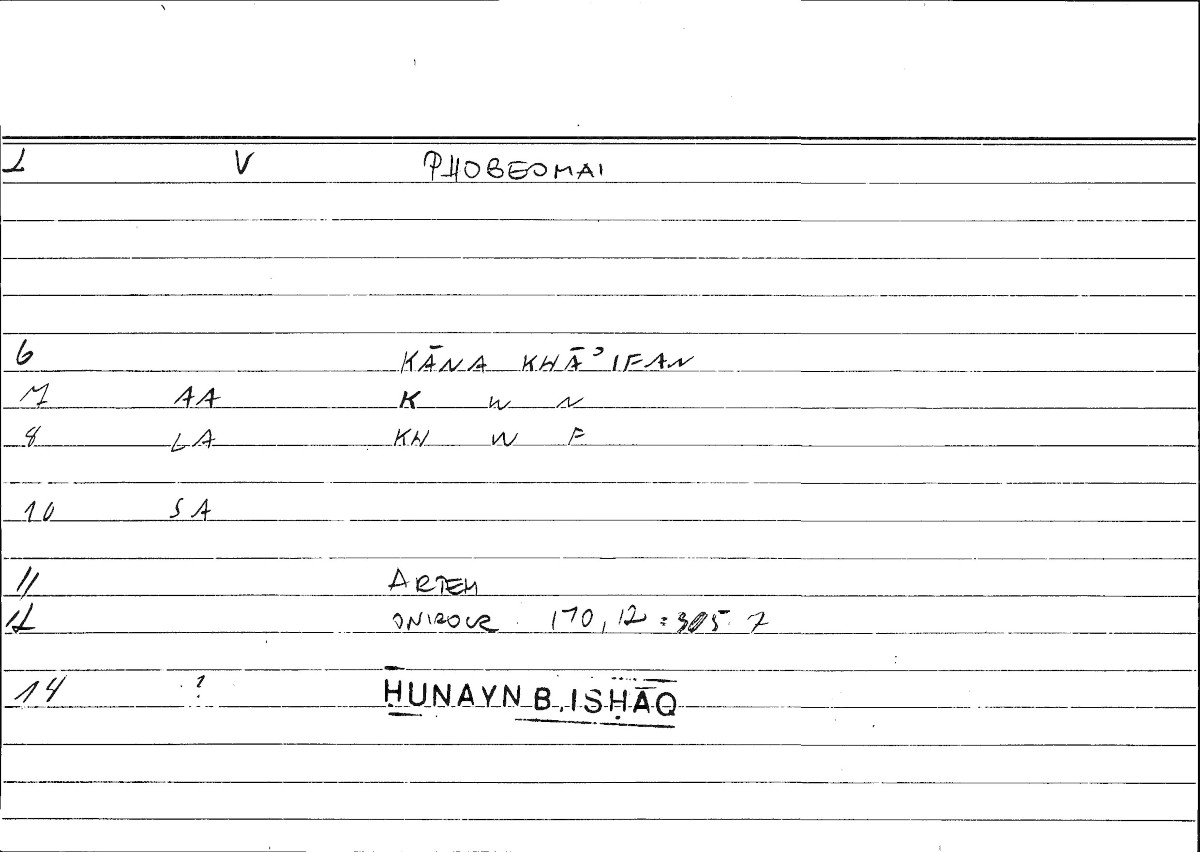 1 V PHOBEOMAI
6 KĀNA KHĀʾIFAN
7 AA K W N
8 LA KH W F
10 SA
11 ARTEM
12 ONIROCR. 170, 12 = 305. 7
14 ? ḤUNAYN B. ISḤĀQ